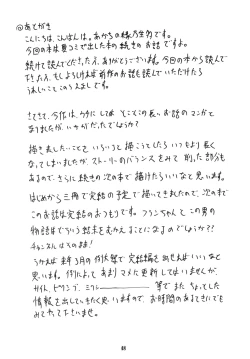 ◎あとがき
こんにちは、こんばんは。あかつらの緑乃生物です。
今回の本は夏コミで出した本の続きのお話ですよ。
続けて読んでくださった方、ありがとうございます。今回の本から読んで
くださった方、もしよろしければ前作のお話も読んでいただけたら
うれしいことこのうえないです。
さてさて、今作は、ウチにしては そこそこの長いお話のマンガと
なりましたが、いかがだったでしょうか?
描き表したいことを いろいろと描こうとしたら いつもより長く
なってしまいましたが、ストーリーのバランスをみて 削った部分も
あるので、さらに続きの次の本で描けたらいいなと思います。
はじめから三冊で完結の予定で描いてきましたので、次の本で
このお話は完結のおつもりです。フランちゃんと この男の
物語はどういう結末をむかえることになるのでしょうか??
チャンネルはそのまま!
うかれば来年3月の例大祭で完結編を出せればいいなと
思います。作品によって あまりマメに更新してはいませんが、
サイト、ピクシブ、ミクシー 等でまた ちょっとした
情報を出していきたく思いますので、お時間のあるときにでも
みてやって下さいませ。